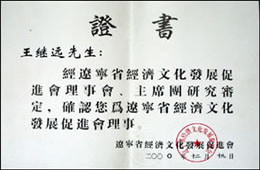 證書
王继远先生:
經遼寧省經濟文化發展促
進會理事會、主席團研究審
定,確認您爲遼寧省經濟文化
發展促進會理事。
遼寧省經濟文化發展促進會
二000年十二月九日